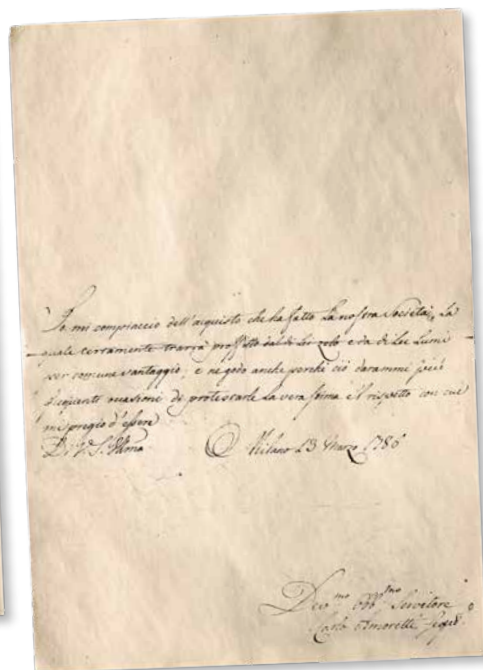 Io mi compiaccio dell'acquisto che ha fatto La nostra Società, La
quale certamente trarrà proffitto dal di Lei zelo e da di Lei Lumi
per comune vantaggio; e ne godo anche perchè ciò darammi più
frequenti occasioni di protestarle La vera stima e'l rispetto con cui
mi pregio d'essere
Di V. S. Illma Milano 23 Marzo 1786
Devmo Obbmo Servitore
Carlo Amoretti Segro